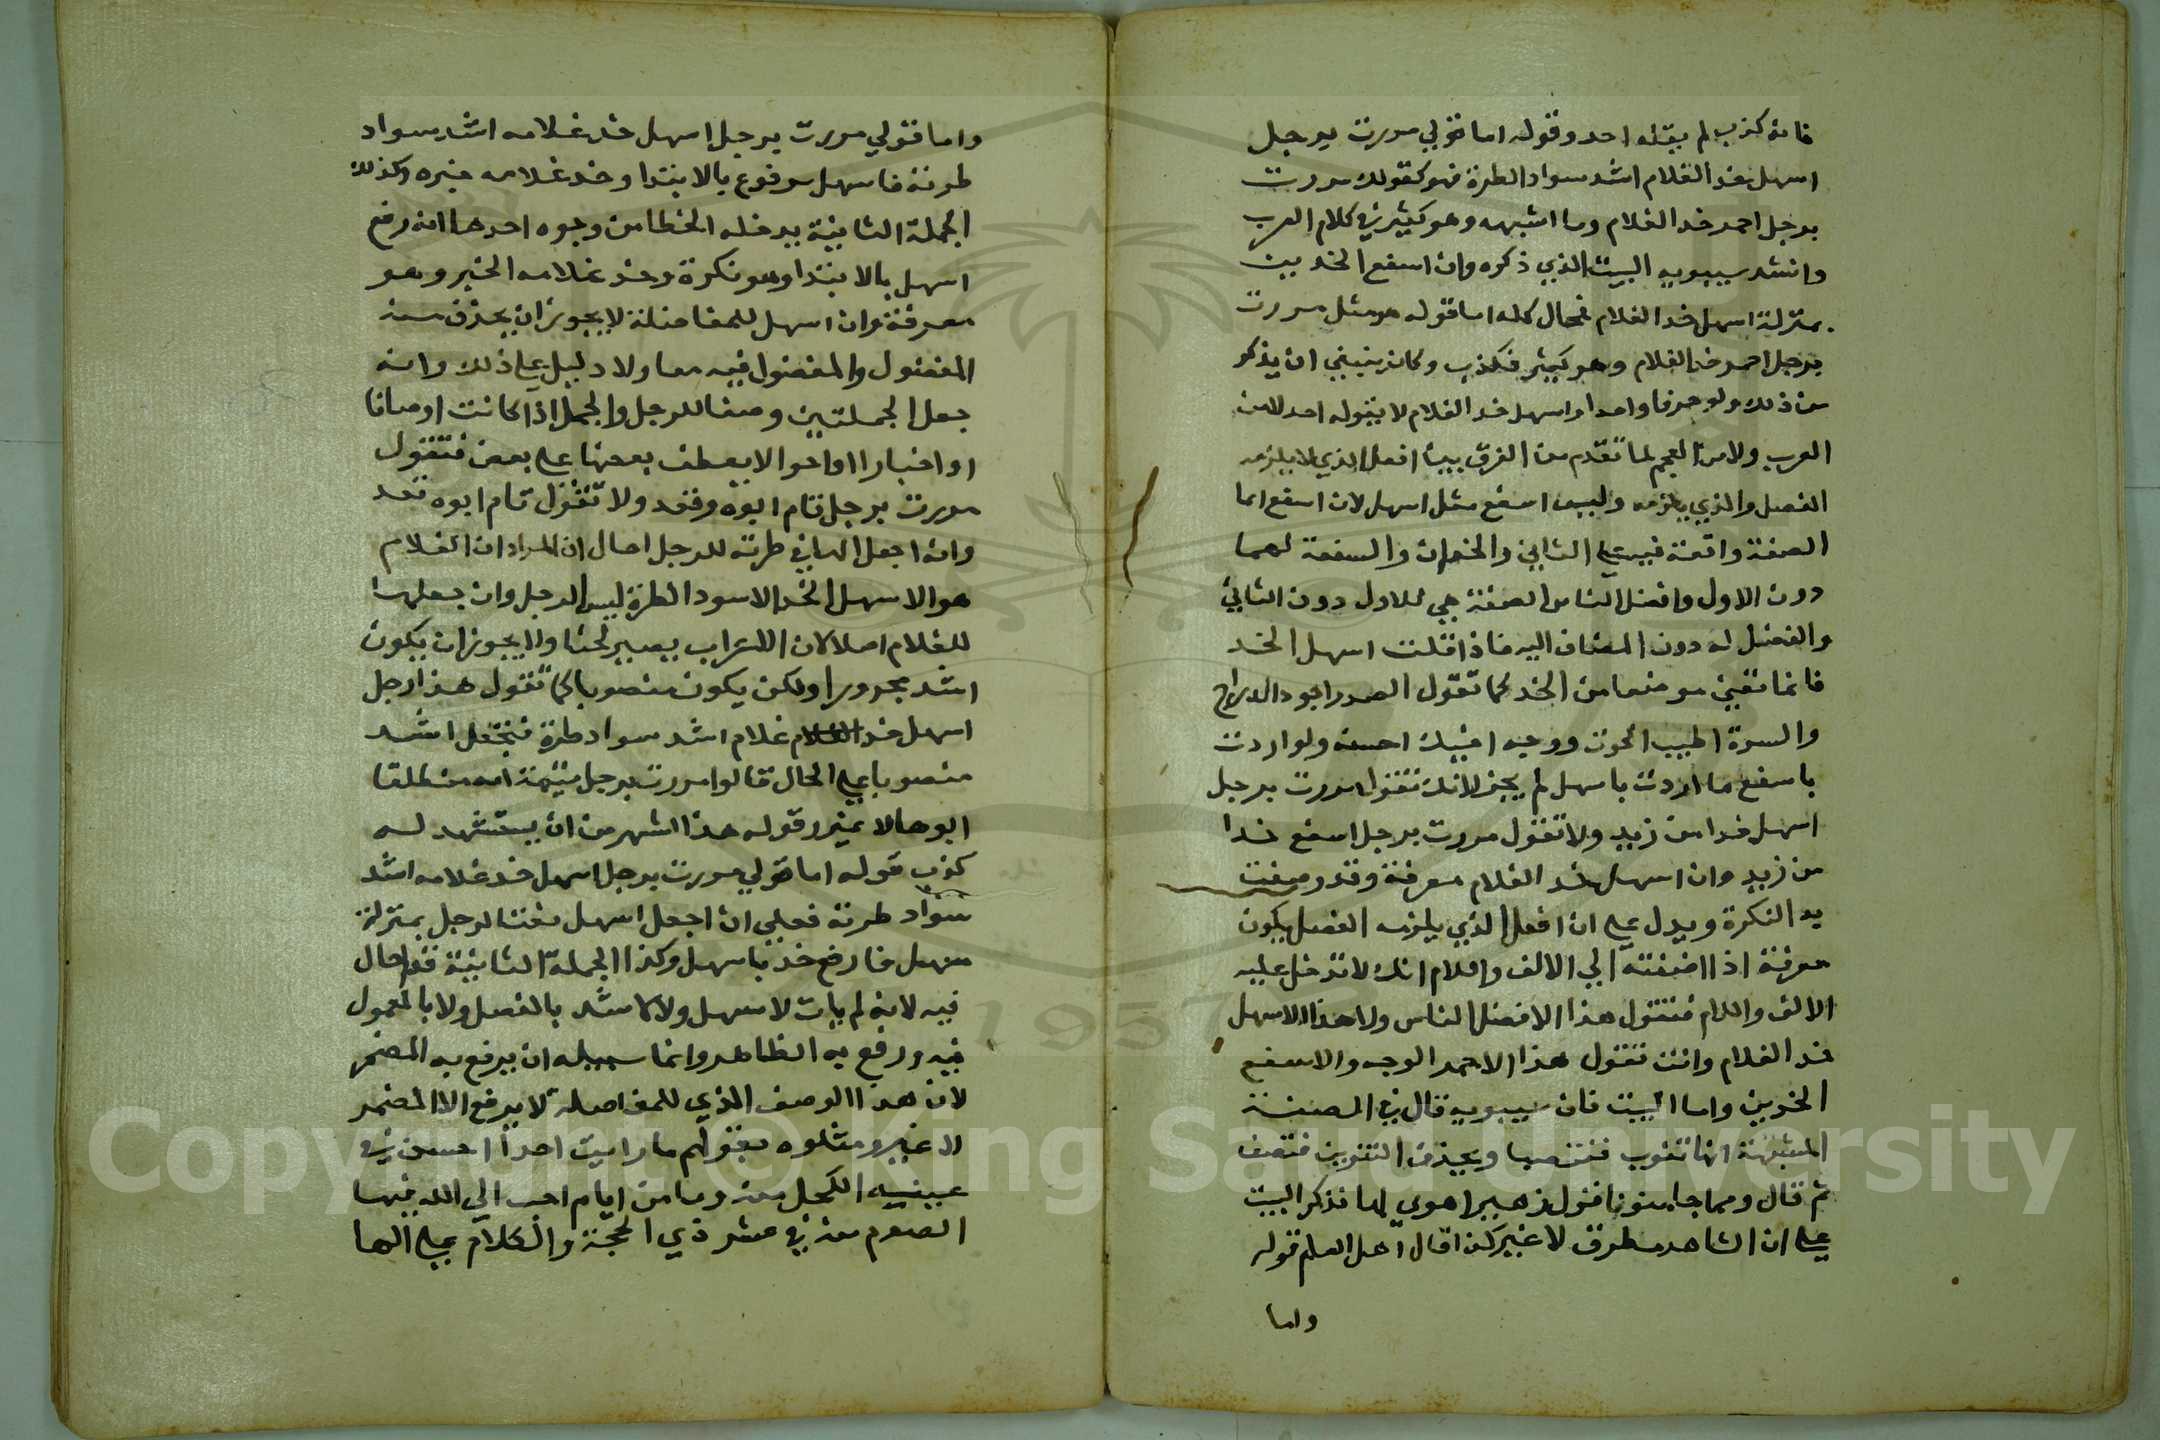 فانه كذب لم يقله احد وقوله اما قولي مررت برجل
اسهل خد الغلام اشد سواد الطرة فهو كقولك مررت
برجل احمر خد الغلام وما اشبهه وهو كثير في كلام العرب
وانشد سيبويه البيت الذي ذكره وان اسفع الخدين
بمنزلة اسهل خد الغلام فمحال كله اما قوله هو مثل مررت
برجل احمر خد الغلام وهو كثير فكذب وكان ينبغي ان يذكر
من ذلك ولو حرفا واحدا واسهل خد الغلام لا يقوله احد لا من
العرب ولا من العجم لما تقدم من الفرق بين افعل الذي لا يلزمه
الفصل والذي يلزمه وليس اسفع مثل اسهل لان اسفع انما
الصفة واقعة فيه على الثاني والخدان والسفعة لهما
دون الاول وافضل الناس الصفة هي للاول دون الثاني
والفضل له دون المضاف اليه فاذا قلت اسهل الخد
فانما تعني موضعا من الخد كما تقول الصدر اجود الدراج
والسرة اطيب الحوت ووجه اخيك احسنه ولو اردت
باسفع ما اردت باسهل لم يجز لانك تقول مررت برجل
اسهل خدا من زيد ولا تقول مررت برجل اسفع خدا
من زيد وان اسهل خد الغلام معرفة وقد وصفت
به النكرة ويدل على ان افعل الذي يلزمه الفصل يكون
معرفة اذا اضفته الى الالف واللام انك لا تدخل عليه
الالف واللام فتقول هذا الافضل الناس ولا هذا الاسهل
خد الغلام وانت تقول هذا الاحمر الوجه والاسفع
الخدين واما البيت فان سيبويه قال في الصفة
المشبهة انها تنون فتنصب ويحذف التنوين فتضف
ثم قال ومما جا منونا قول زهير اهوى لها فذكر البيت
على ان الشاهد مطرق لا غير كذا قال اهل العلم قوله
واما
واما قولي مررت برجل اسهل خد غلامه اشد سواد
طرته فاسهل مرفوع بالابتدا وخد غلامه خبره وكذلك
الجملة الثانية يدخله الخطا من وجوه احدها انه رفع
اسهل بالابتدا وهو نكرة وخد غلامه الخبر وهو
معرفة وان اسهل للمفاضلة لا يجوز ان يحذف منه
المفضول والمفضول فيه معا ولا دليل على ذلك وانه
جعل الجملتين وصفا للرجل والجمل اذا كانت اوصافا
او اخبارا او احوالا يعطف بعضها على بعض فتقول
مررت برجل قام ابوه وقعد ولا تقول قام ابوه قعد
وان اجعل الها في طرته للرجل احال ان المراد ان الغلام
هو الاسهل الخد الاسود الطرة ليس الرجل وان جعلها
للغلام احال لان الاعراب يصير لحنا ولا يجوز ان يكون
اشد مجرورا ولكن يكون منصوبا كما تقول هذا رجل
اسهل خد الغلام غلام اشد سواد طرة فتجعل اشد
منصوبا على الحال قالوا مررت برجل متيمة امه منطلقا
ابوها لا غير وقوله هذا اشهر من ان يستشهد له
كذب قوله اما قولي مررت برجل اسهل خد غلامه اشد
سواد طرته فعلى ان اجعل اسهل نعتا لرجل بمنزلة
سهل فارفع خد باسهل وكذا الجملة الثانية قد احال
فيه لانه لم يات لاسهل ولا لاشد بالفصل ولا بالمعمول
فيه ورفع به الظاهر وانما سبيله ان يرفع به المضمر
لان هذا الوصف الذي للمفاضلة لا يرفع الا المضمر
لا غير ومثلوه بقولهم ما رايت احدا احسن في
عينيه الكحل منه وما من ايام احب الي الله فيها
الصوم منه في عشر ذي الحجة والكلام على الها